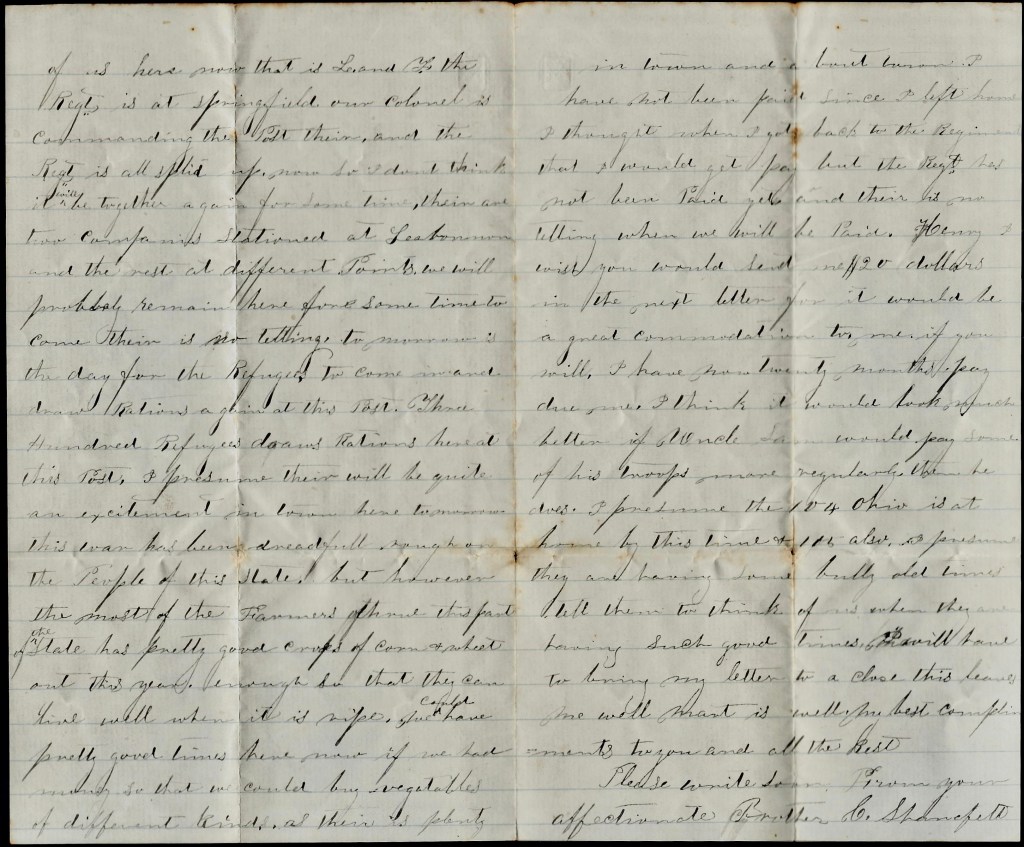 of us here now that is L and F the
Regt. is at Springfield our colonel is
commanding the Post their, and the
Regt is all split up. now so i dont think
it will be together again for some time, their are
two companies Stationed at Lesbonnon
and the rest at different Points we will
probbaly remain here fore some time to
come their is no telling. to morrow is
the day for the Refugees to come in and
draw Rations again at this Post. Three
Hundred Refugees draws Rations here at
this Post. I presume their will be quite
an excitement in town here tomorrow
this war has been dreadfull rough on
the People of this State. but however
the most of the Farmers of this part
of the State has pretty good crops of corn & wheat
out this year. enough so that they can
live well when it is ripe. we could have
pretty good times here now if we had
money so that we could buy vegatables
of different kinds. as their is plenty
in town and a bout  I
have not been paid since I left home
I thought when I got back to the Regiment
that I would get pay but the Regt. has
not been Paid yet and their is no
telling when we will be Paid. Henry I
wish you would send me $20 dollars
in the next letter for it would be
a great commodation to me. if you
will, I have now twenty months pay
due me. I think it would look much
better if Uncle Sam would pay some
of his troops more regular than he
does. I presume the 104 Ohio is at
home by this time & also, I presume
they are having some bully old times
tell them to think of us when they are
having such good times, I will have
to bring my letter to a close this leaves
me well  is well my best complim
ments to you and all the Rest
Please write soon. From your
affectionate Brother C.